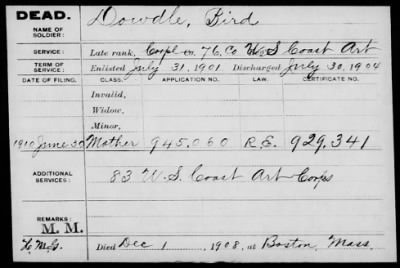 DEAD.
NAME OF SOLDIER:
Dowdle, Bird
SERVICE:
Late rank, Corpl 7 C. Co U.S Coast Art
TERM OF SERVICE:
Enlisted July 31, 1901 Discharged July 30, 1904
DATE OF FILING. CLASS. APPLICATION NO. LAW. CERTIFICATE NO.
Invalid,
Widow,
Minor,
1910 June 30 Mother 945.060 R.E. 929.341
ADDITIONAL SERVICES:
83 U.S. Coast Art Corps
REMARKS:
M. M.
Died Dec 1, 1908, at Boston, Mass.